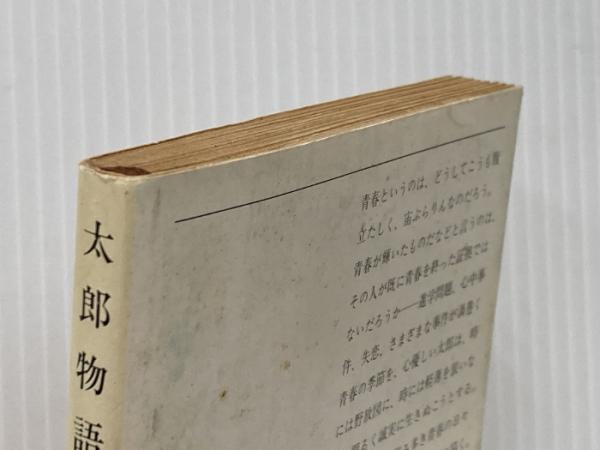 太郎物語
青春というのは、どうしてこうも腹
立たしく、宙ぶらりんなのだろう。
青春が輝いたものだなどと言うのは、
その人が既に青春を終った証拠では
ないだろうか──進学問題、心中事
件、失恋、さまざまな事件が渦巻く
青春の季節を、心優しい太郎は、時
には野放図に、時には軽薄を装いな
明るく誠実に生きぬこうとする。
多き青春の日々